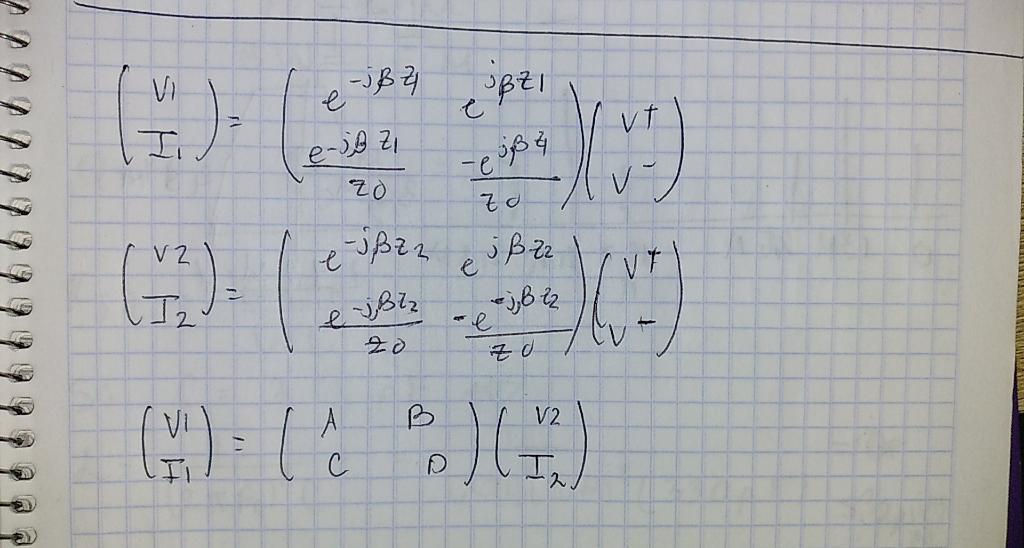 (V1 I1) = (e^-jβz1 e^jβz1 e^-jβz1/z0 -e^jβz1/z0)(V+ V-)
(V2 I2) = (e^-jβz2 e^jβz2 e^-jβz2/z0 -e^-jβz2/z0)(V+ V-)
(V1 I1) = (A B C D)(V2 I2)